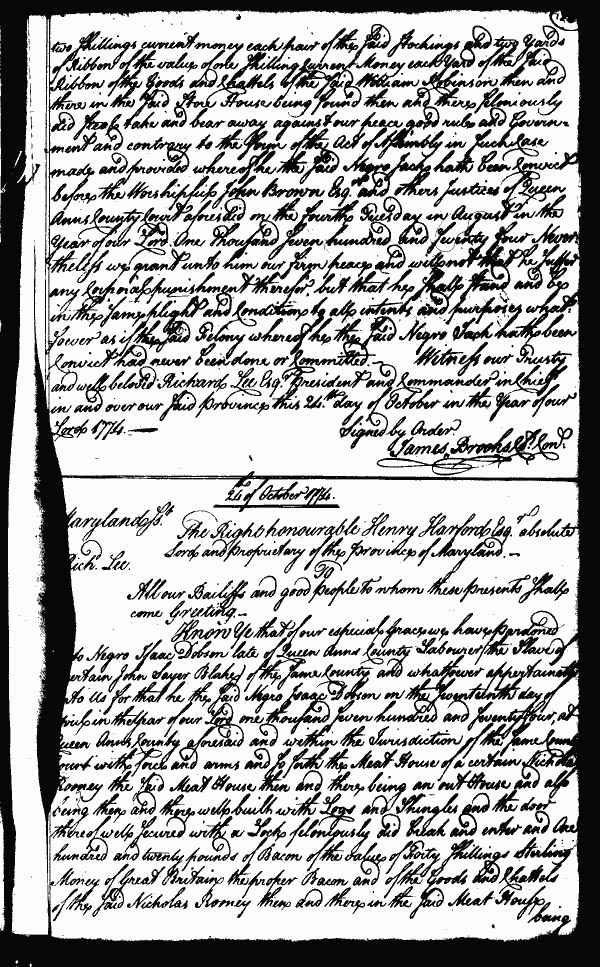 two Shillings current money each pair of the said Stockings and two Yards
of Ribbon of the value of one Shilling Current Money each Yard of the said
Ribbon of the Goods and Chattels of the said William Robinson then and
there in the said Store House being found then and there feloniously
did steal take and bear away against our peace good rule and Govern=
ment and contrary to the Form of the Act of Assembly in such case
made and provided whereof he the said Negro Jack hath been Convict
before the Worshipfull John Brown Esqr. and others Justices of Queen
Anns County Court aforesaid on the fourth Tuesday in August in the
Year of our Lord One Thousand seven hundred and seventy four Never
theless we grant unto him our firm peace and will not that he suffer
any Corporal punishment therefor but that he shall stand and be
in the same plight and Condition to all intents and purposes what=
soever as if the said Felony whereof he the said Negro Jack hath been
Convict had never been done or Committed. — Witness our Trusty
and well beloved Richard Lee Esqr. President and Commander in Chief
in and over our said Province this 24th. day of October in the Year of our
Lord 1774 —
Signed by Order
James Brooks Cl. Con.
24th of October 1774.
Maryland ss.t
The Right honourable Henry Harford Esqr. absolute
Lord and Proprietary of the Province of Maryland. —
Richd. Lee.
To
All our Bailiffs and good People to whom these Presents shall
come Greeting. —
Know Ye that of our especial Grace we have Pardoned
Negro Isaac Dobson late of Queen Anns County Labourer the Slave of
certain John Sayer Blake of the same County and whatsoever appertaineth
to Us for that he the said Negro Isaac Dobson on the seventeenth day of
in the Year of our Lord one thousand seven hundred and seventy four, at
Queen Anns County aforesaid and within the Jurisdiction of the same County
Court with force and arms and so forth the Meat House of a certain Nicholas
Romey the said Meat House then and there being an out House and also
being then and there well built with Logs and Shingles and the door
thereof well secured with a Lock feloniously did break and enter and One
hundred and twenty pounds of Bacon of the value of Forty Shillings Sterling
Money of Great Britain the proper Bacon and of the Goods and Chattels
of the said Nicholas Romey then and there in the said Meat House
being